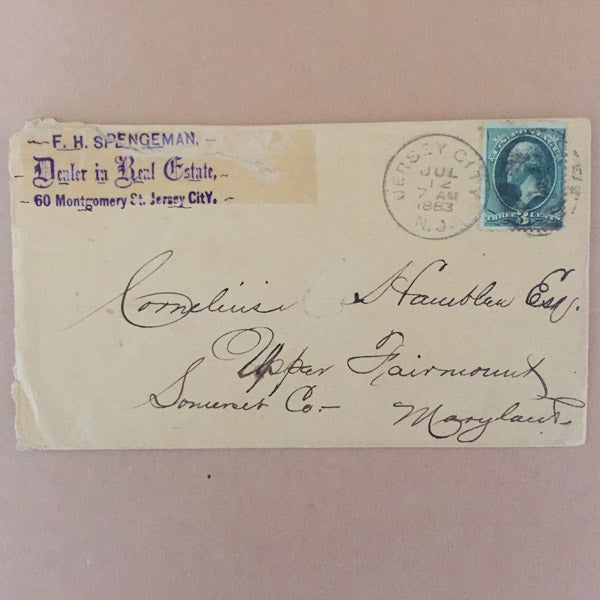 F. H. SPENGEMAN,
Dealer in Real Estate,
60 Montgomery St. Jersey CitY.
JERSEY CITY
JUL
12
7 AM
1883
N. J.
THREE 3 CENTS
Cornelius Hamblen Esq.
Upper Fairmount
Somerset Co-
Maryland